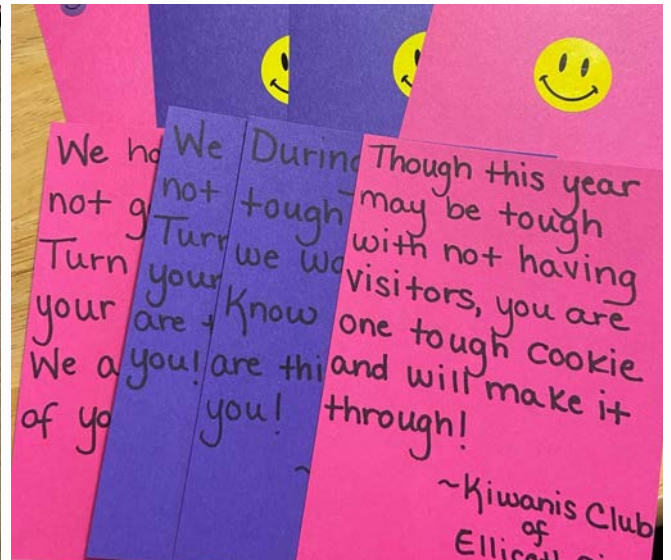 We
not
Turn
your
We
of
We
not
your
are
you!
During
tough
we
Know
are
you!
Though this year
may be tough
with not having
visitors, you are
one tough cookie
and will make it
through!
~Kiwanis Club
of